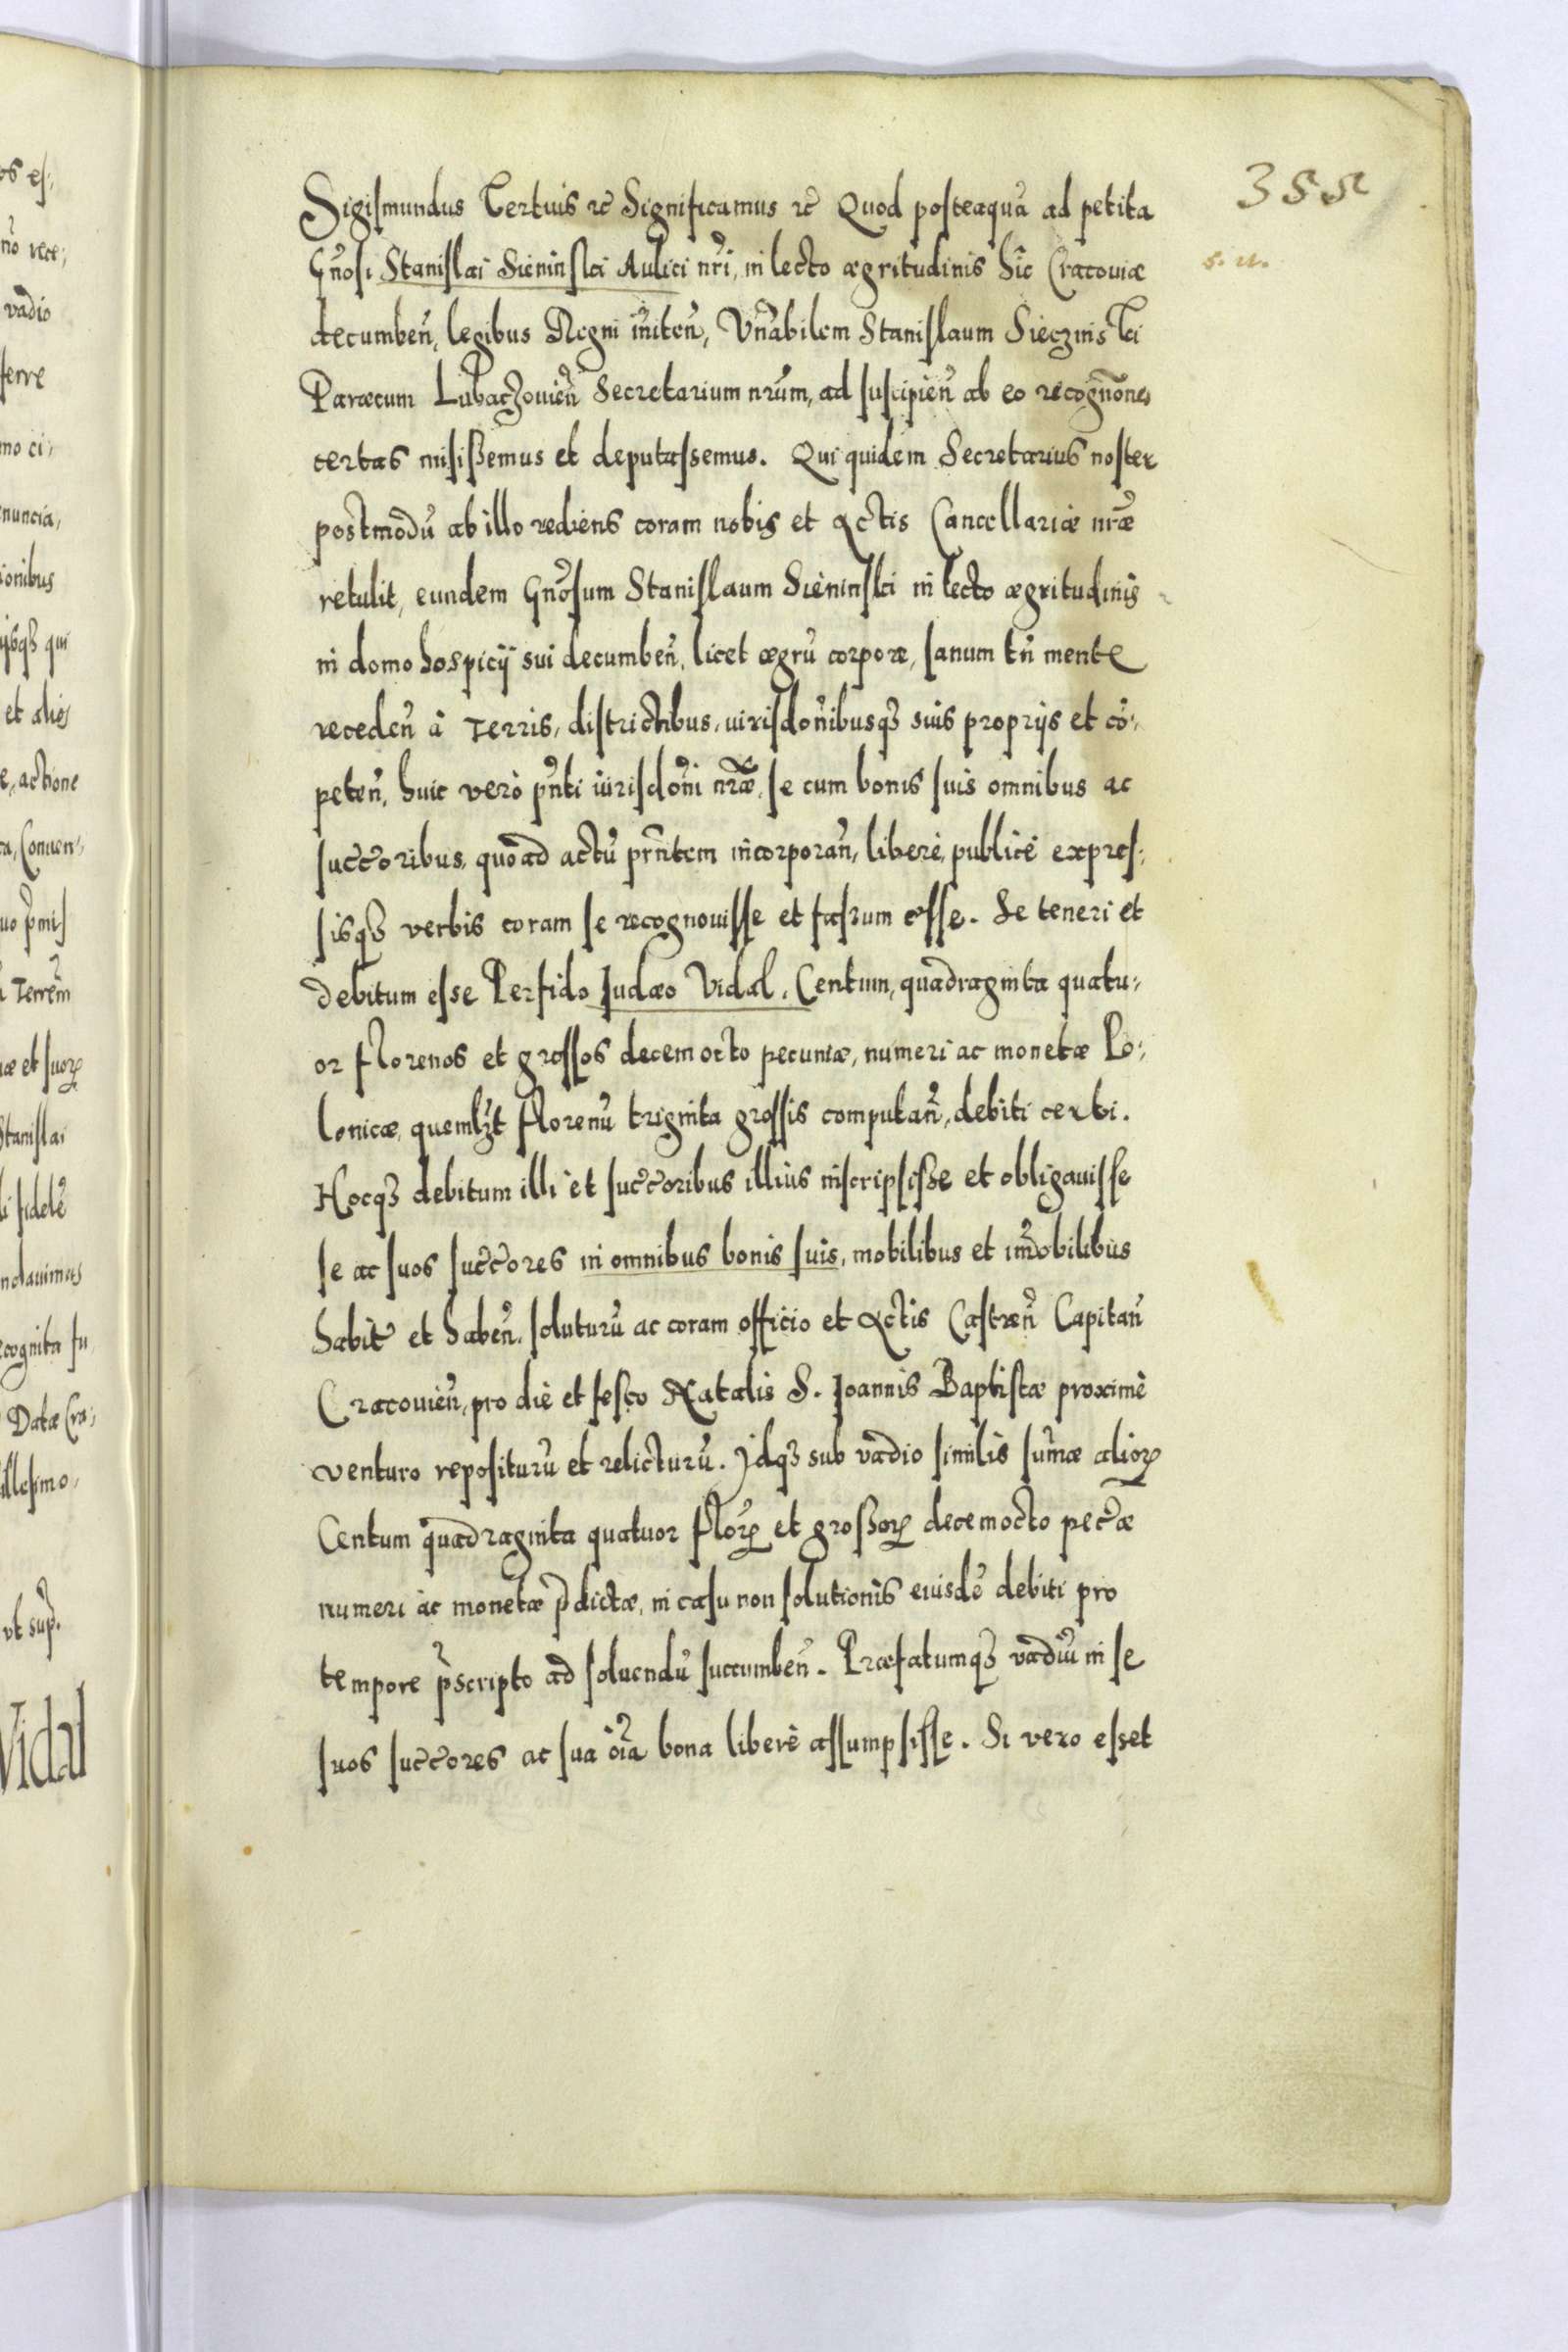 355
s. u.
Sigismundus Tertius &c Significamus &c Quod posteaquā ad petita
Gn̄osi Stanislai Sieninski Aulici nr̄i, in lecto ægritudinis hîc Cracouiæ
decumben̄, legibus Regni in̄iten̄, Vn̄abilem Stanislaum Sieczinski
Paræcum Lubaczouien̄ Secretarium nr̄um, ad suscipien̄ ab eo recogn̄ones
certas misissemus et deputassemus. Qui quidem Secretarius noster
postmodū ab illo rediens coram nobis et Actis Cancellariæ nr̄æ
retulit, eundem Gn̄osum Stanislaum Sieninski in lecto ægritudinis
in domo hospicij sui decumben̄, licet ægrū corpore, sanum tn̄ mente
receden̄ à Terris, districtibus, iurisdōnibusq3 suis proprijs et cō-
peten̄, huic verò pn̄ti iurisdōni nr̄æ, se cum bonis suis omnibus ac
succ̄oribus, quoad actū prn̄tem incorporan̄, liberè, publicè expres-
sisq3 verbis coram se recognouisse et fassum esse. Se teneri et
debitum esse Perfido Iudæo Vidal, Centum, quadraginta quatu-
or florenos et grossos decemocto pecuniæ, numeri ac monetæ Po-
lonicæ, quemlzt florenū triginta grossis computan̄, debiti certi.
Hocq3 debitum illi et succ̄oribus illius inscripsisse et obligauisse
se ac suos succ̄ores in omnibus bonis suis, mobilibus et im̄obilibus
habit̄ et haben̄, soluturū ac coram officio et Actis Castren̄ Capitan̄
Cracouien̄, pro die et festo Natalis S. Ioannis Baptistæ proximè
venturo repositurū et relicturū. Idq3 sub vadio similis sum̄æ aliorꝝ
Centum quadraginta quatuor florꝝ et grossorꝝ decemocto pec̄æ
numeri ac monetæ p̄dictæ, in casu non solutionis eiusdē debiti pro
tempore p̄scripto ad soluendū succumben̄. Præfatumq3 vadiū in se
suos succ̄ores ac sua oīa bona liberè assumpsisse. Si vero esset